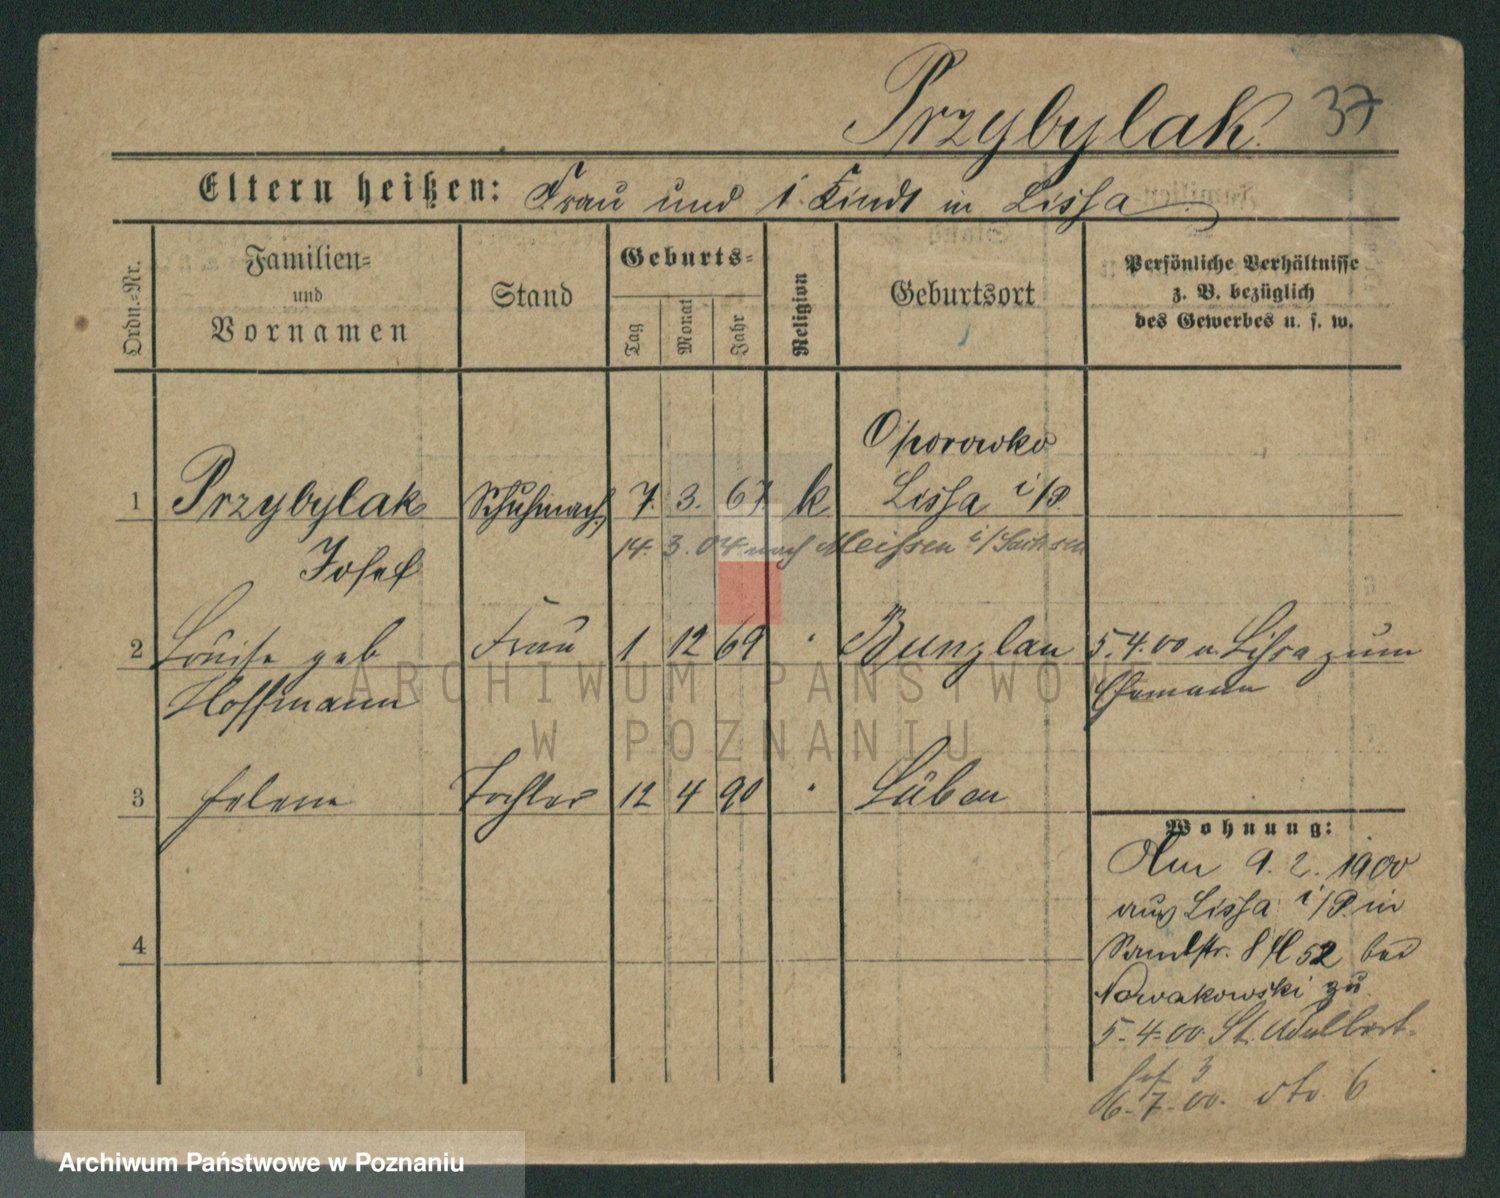 Przybylak. 37
Eltern heißen: Frau und 1 Kind in Lissa
Ordn.=Nr.
Familien=
und
Vornamen
Stand
Geburts=
Tag
Monat
Jahr
Religion
Geburtsort
Persönliche Verhältnisse
z. B. bezüglich
des Gewerbes u. s. w.
Oporowko
1 Przybylak Schuhmach. 7. 3. 67. k Lissa i/P.
14. 3. 04 nach Meissen i/Sachsen
Josef
2 Louise geb Frau 1 12 69 " Bunzlau 5.4.00 a. Lissa zum
Hoffmann Ehemann
3 Helene Tochter 12 4 90 " Lüben
Wohnung:
Am 9. 2. 1900
aus Lissa i/P. in
4
Sandstr. 8 II 52 bei
Nowakowski zu
5.4.00 St. Adalbert-
3
6.7.00. dto. 6
ARCHIWUM PAŃSTWOWE
W POZNANIU
Archiwum Państwowe w Poznaniu